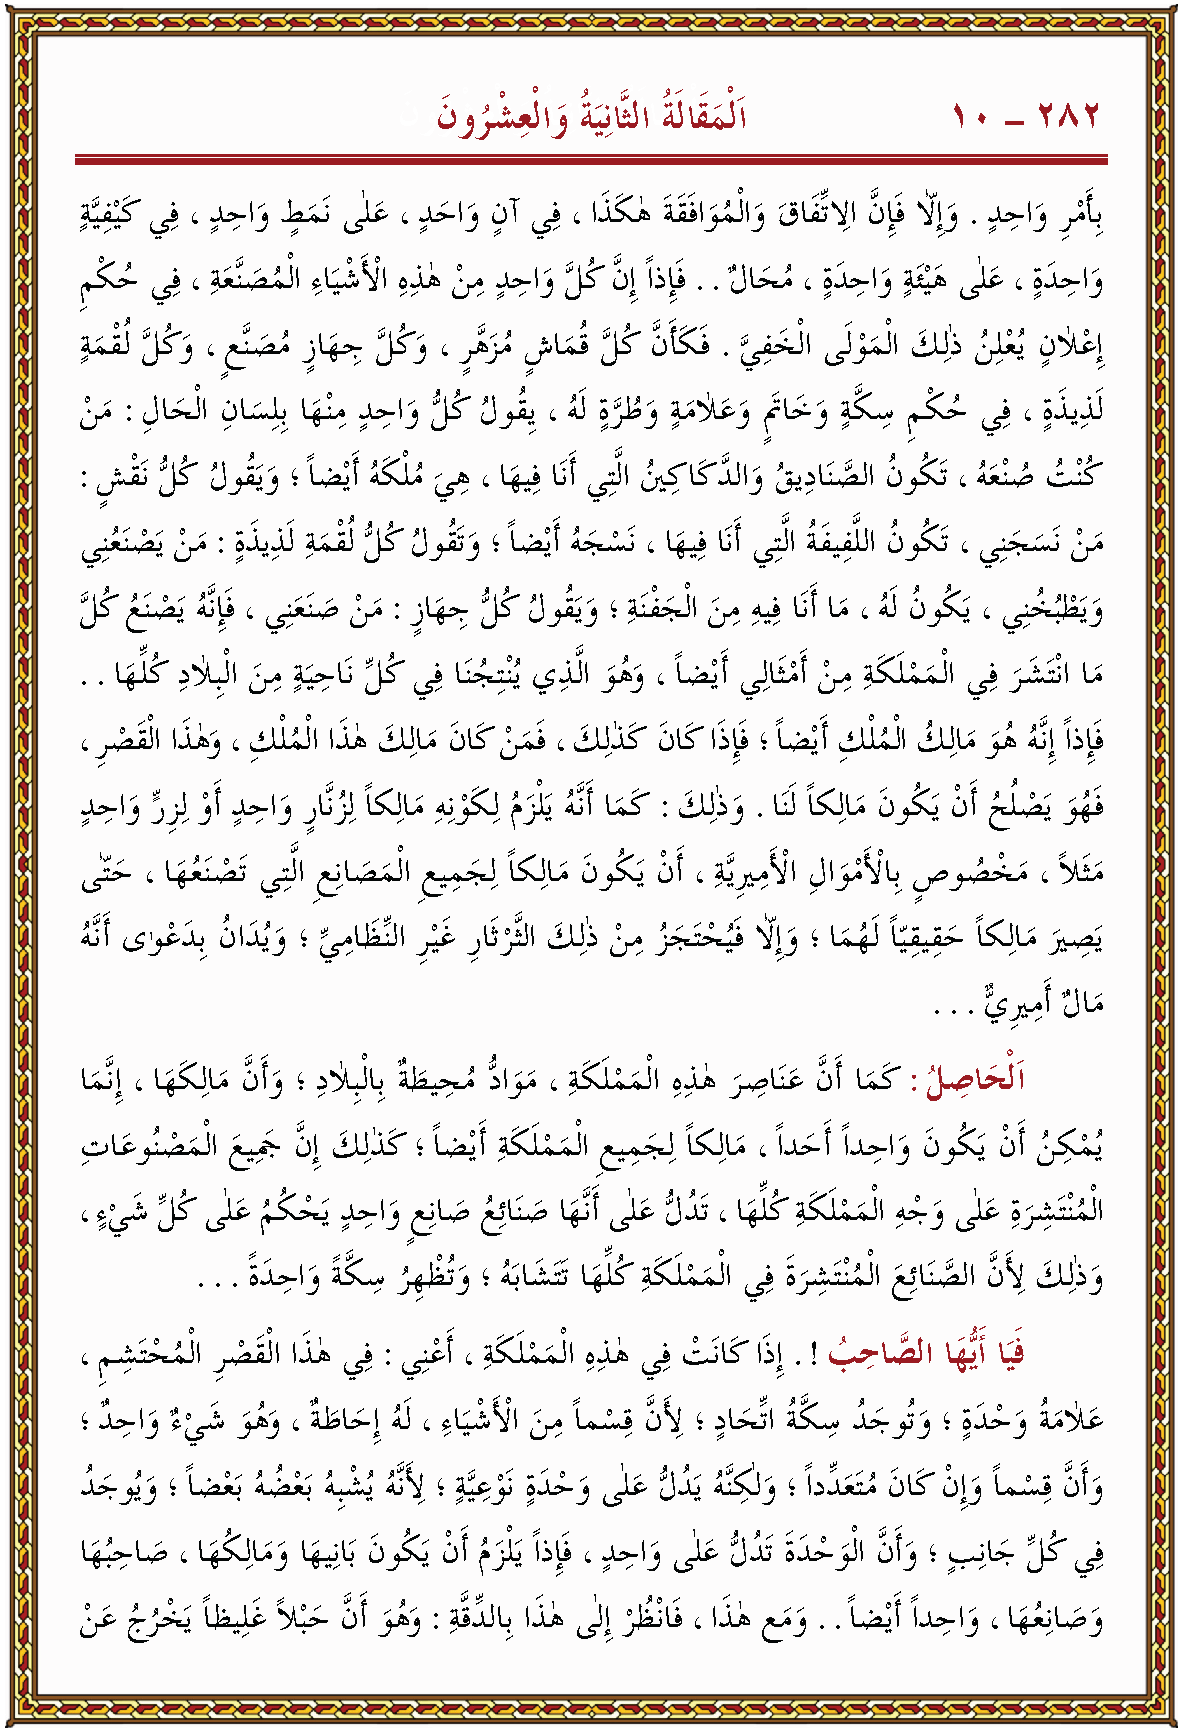 ٢٨٢ – ١٠ اَلْمَقَالَةُ الثَّانِيَةُ وَالْعِشْرُونَ
بِأَمْرٍ وَاحِدٍ . وَإِلاّٰ فَإِنَّ الاِتِّفَاقَ وَالْمُوَافَقَةَ هٰكَذَا ، فِي آنٍ وَاحَدٍ ، عَلٰى نَمَطٍ وَاحِدٍ ، فِي كَيْفِيَّةٍ
وَاحَدَةٍ ، عَلٰى هَيْئَةٍ وَاحَدَةٍ ، مُحَالٌ . . فَإِذاً إِنَّ كُلَّ وَاحِدٍ مِنْ هٰذِهِ الْأَشْيَاءِ الْمُصَنَّعَةِ ، فِي حُكْمِ
إِعْلاٰنٍ يُعْلِنُ ذٰلِكَ الْمَوْلَى الْخَفِيَّ . فَكَأَنَّ كُلَّ قُمَاشٍ مُزَهَّرٍ ، وَكُلَّ جِهَازٍ مُصَنَّعٍ ، وَكُلَّ لُقْمَةٍ
لَذِيذَةٍ ، فِي حُكْمِ سِكَّةٍ وَخَاتَمٍ وَعَلاٰمَةٍ وَطُرَّةٍ لَهُ ، يِقُولُ كُلُّ وَاحِدٍ مِنْهَا بِلِسَانِ الْحَالِ : مَنْ
كُنْتُ صُنْعَهُ ، تَكُونُ الصَّنَادِيقُ وَالدَّكَاكِينُ الَّتِي أَنَا فِيهَا ، هِيَ مُلْكَهُ أَيْضاً ؛ وَيَقُولُ كُلُّ نَقْشٍ :
مَنْ نَسَجَنِي ، تَكُونُ اللَّفِيفَةُ الَّتِي أَنَا فِيهَا ، نَسْجَهُ أَيْضاً ؛ وَتَقُولُ كُلُّ لُقْمَةِ لَذِيذَةٍ : مَنْ يَصْنَعُنِي
وَيَطْبُخُنِي ، يَكُونُ لَهُ ، مَا أَنَا فِيهِ مِنَ الْجَفْنَةِ ؛ وَيَقُولُ كُلُّ جِهَازٍ : مَنْ صَنَعَنِي ، فَإِنَّهُ يَصْنَعُ كُلَّ
مَا انْتَشَرَ فِي الْمَمْلَكَةِ مِنْ أَمْثَالِي أَيْضاً ، وَهُوَ الَّذِي يُنْتِجُنَا فِي كُلِّ نَاحِيَةٍ مِنَ الْبِلاٰدِ كُلِّهَا . .
فَإِذاً إِنَّهُ هُوَ مَالِكُ الْمُلْكِ أَيْضاً ؛ فَإِذَا كَانَ كَذٰلِكَ ، فَمَنْ كَانَ مَالِكَ هٰذَا الْمُلْكِ ، وَهٰذَا الْقَصْرِ ،
فَهُوَ يَصْلُحُ أَنْ يَكُونَ مَالِكاً لَنَا . وَذٰلِكَ : كَمَا أَنَّهُ يَلْزَمُ لِكَوْنِهِ مَالِكاً لِزُنَّارٍ وَاحِدٍ أَوْ لِزِرٍّ وَاحِدٍ
مَثَلاً ، مَخْصُوصٍ بِالْأَمْوَالِ الْأَمِيرِيَّةِ ، أَنْ يَكُونَ مَالِكاً لِجَمِيعِ الْمَصَانِعِ الَّتِي تَصْنَعُهَا ، حَتّٰى
يَصِيرَ مَالِكاً حَقِيقِيّاً لَهُمَا ؛ وَإِلاّٰ فَيُحْتَجَزُ مِنْ ذٰلِكَ الثَّرْثَارِ غَيْرِ النِّظَامِيِّ ؛ وَيُدَانُ بِدَعْوٰى أَنَّهُ
مَالٌ أَمِيرِيٌّ . . .
اَلْحَاصِلُ : كَمَا أَنَّ عَنَاصِرَ هٰذِهِ الْمَمْلَكَةِ ، مَوَادُّ مُحِيطَةٌ بِالْبِلاٰدِ ؛ وَأَنَّ مَالِكَهَا ، إِنَّمَا
يُمْكِنُ أَنْ يَكُونَ وَاحِداً أَحَداً ، مَالِكاً لِجَمِيعِ الْمَمْلَكَةِ أَيْضاً ؛ كَذٰلِكَ إِنَّ جَمِيعَ الْمَصْنُوعَاتِ
الْمُنْتَشِرَةِ عَلٰى وَجْهِ الْمَمْلَكَةِ كُلِّهَا ، تَدُلُّ عَلٰى أَنَّهَا صَنَائِعُ صَانِعٍ وَاحِدٍ يَحْكُمُ عَلٰى كُلِّ شَيْءٍ ،
وَذٰلِكَ لِأَنَّ الصَّنَائِعَ الْمُنْتَشِرَةَ فِي الْمَمْلَكَةِ كُلِّهَا تَتَشَابَهُ ؛ وَتُظْهِرُ سِكَّةً وَاحَدَةً . . .
فَيَا أَيُّهَا الصَّاحِبُ ! . إِذَا كَانَتْ فِي هٰذِهِ الْمَمْلَكَةِ ، أَعْنِي : فِي هٰذَا الْقَصْرِ الْمُحْتَشِمِ ،
عَلاٰمَةُ وَحْدَةٍ ؛ وَتُوجَدُ سِكَّةُ اتِّحَادٍ ؛ لِأَنَّ قِسْماً مِنَ الْأَشْيَاءِ ، لَهُ إِحَاطَةٌ ، وَهُوَ شَيْءٌ وَاحِدٌ ؛
وَأَنَّ قِسْماً وَإِنْ كَانَ مُتَعَدِّداً ؛ وَلٰكِنَّهُ يَدُلُّ عَلٰى وَحْدَةٍ نَوْعِيَّةٍ ؛ لِأَنَّهُ يُشْبِهُ بَعْضُهُ بَعْضاً ؛ وَيُوجَدُ
فِي كُلِّ جَانِبٍ ؛ وَأَنَّ الْوَحْدَةَ تَدُلُّ عَلٰى وَاحِدٍ ، فَإِذاً يَلْزَمُ أَنْ يَكُونَ بَانِيهَا وَمَالِكُهَا ، صَاحِبُهَا
وَصَانِعُهَا ، وَاحِداً أَيْضاً . . وَمَعَ هٰذَا ، فَانْظُرْ إِلٰى هٰذَا بِالدِّقَّةِ : وَهُوَ أَنَّ حَبْلاً غَلِيظاً يَخْرُجُ عَنْ